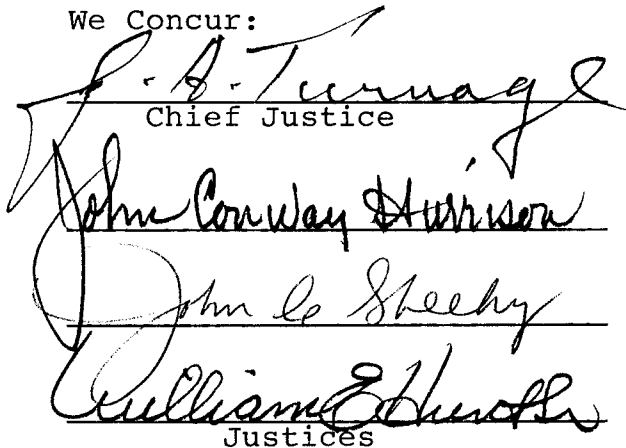 We Concur:
J. A. Turnage
Chief Justice
John Conway Harrison
John C. Sheehy
William E. Hunt, Sr.
Justices